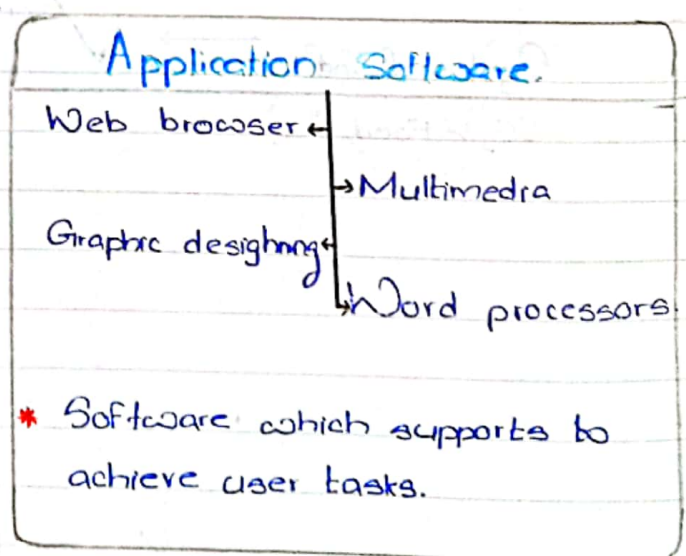 Application Software.
Web browser
Multimedia
Graphic desighnng
Word processors
* Software which supports to
achieve user tasks.